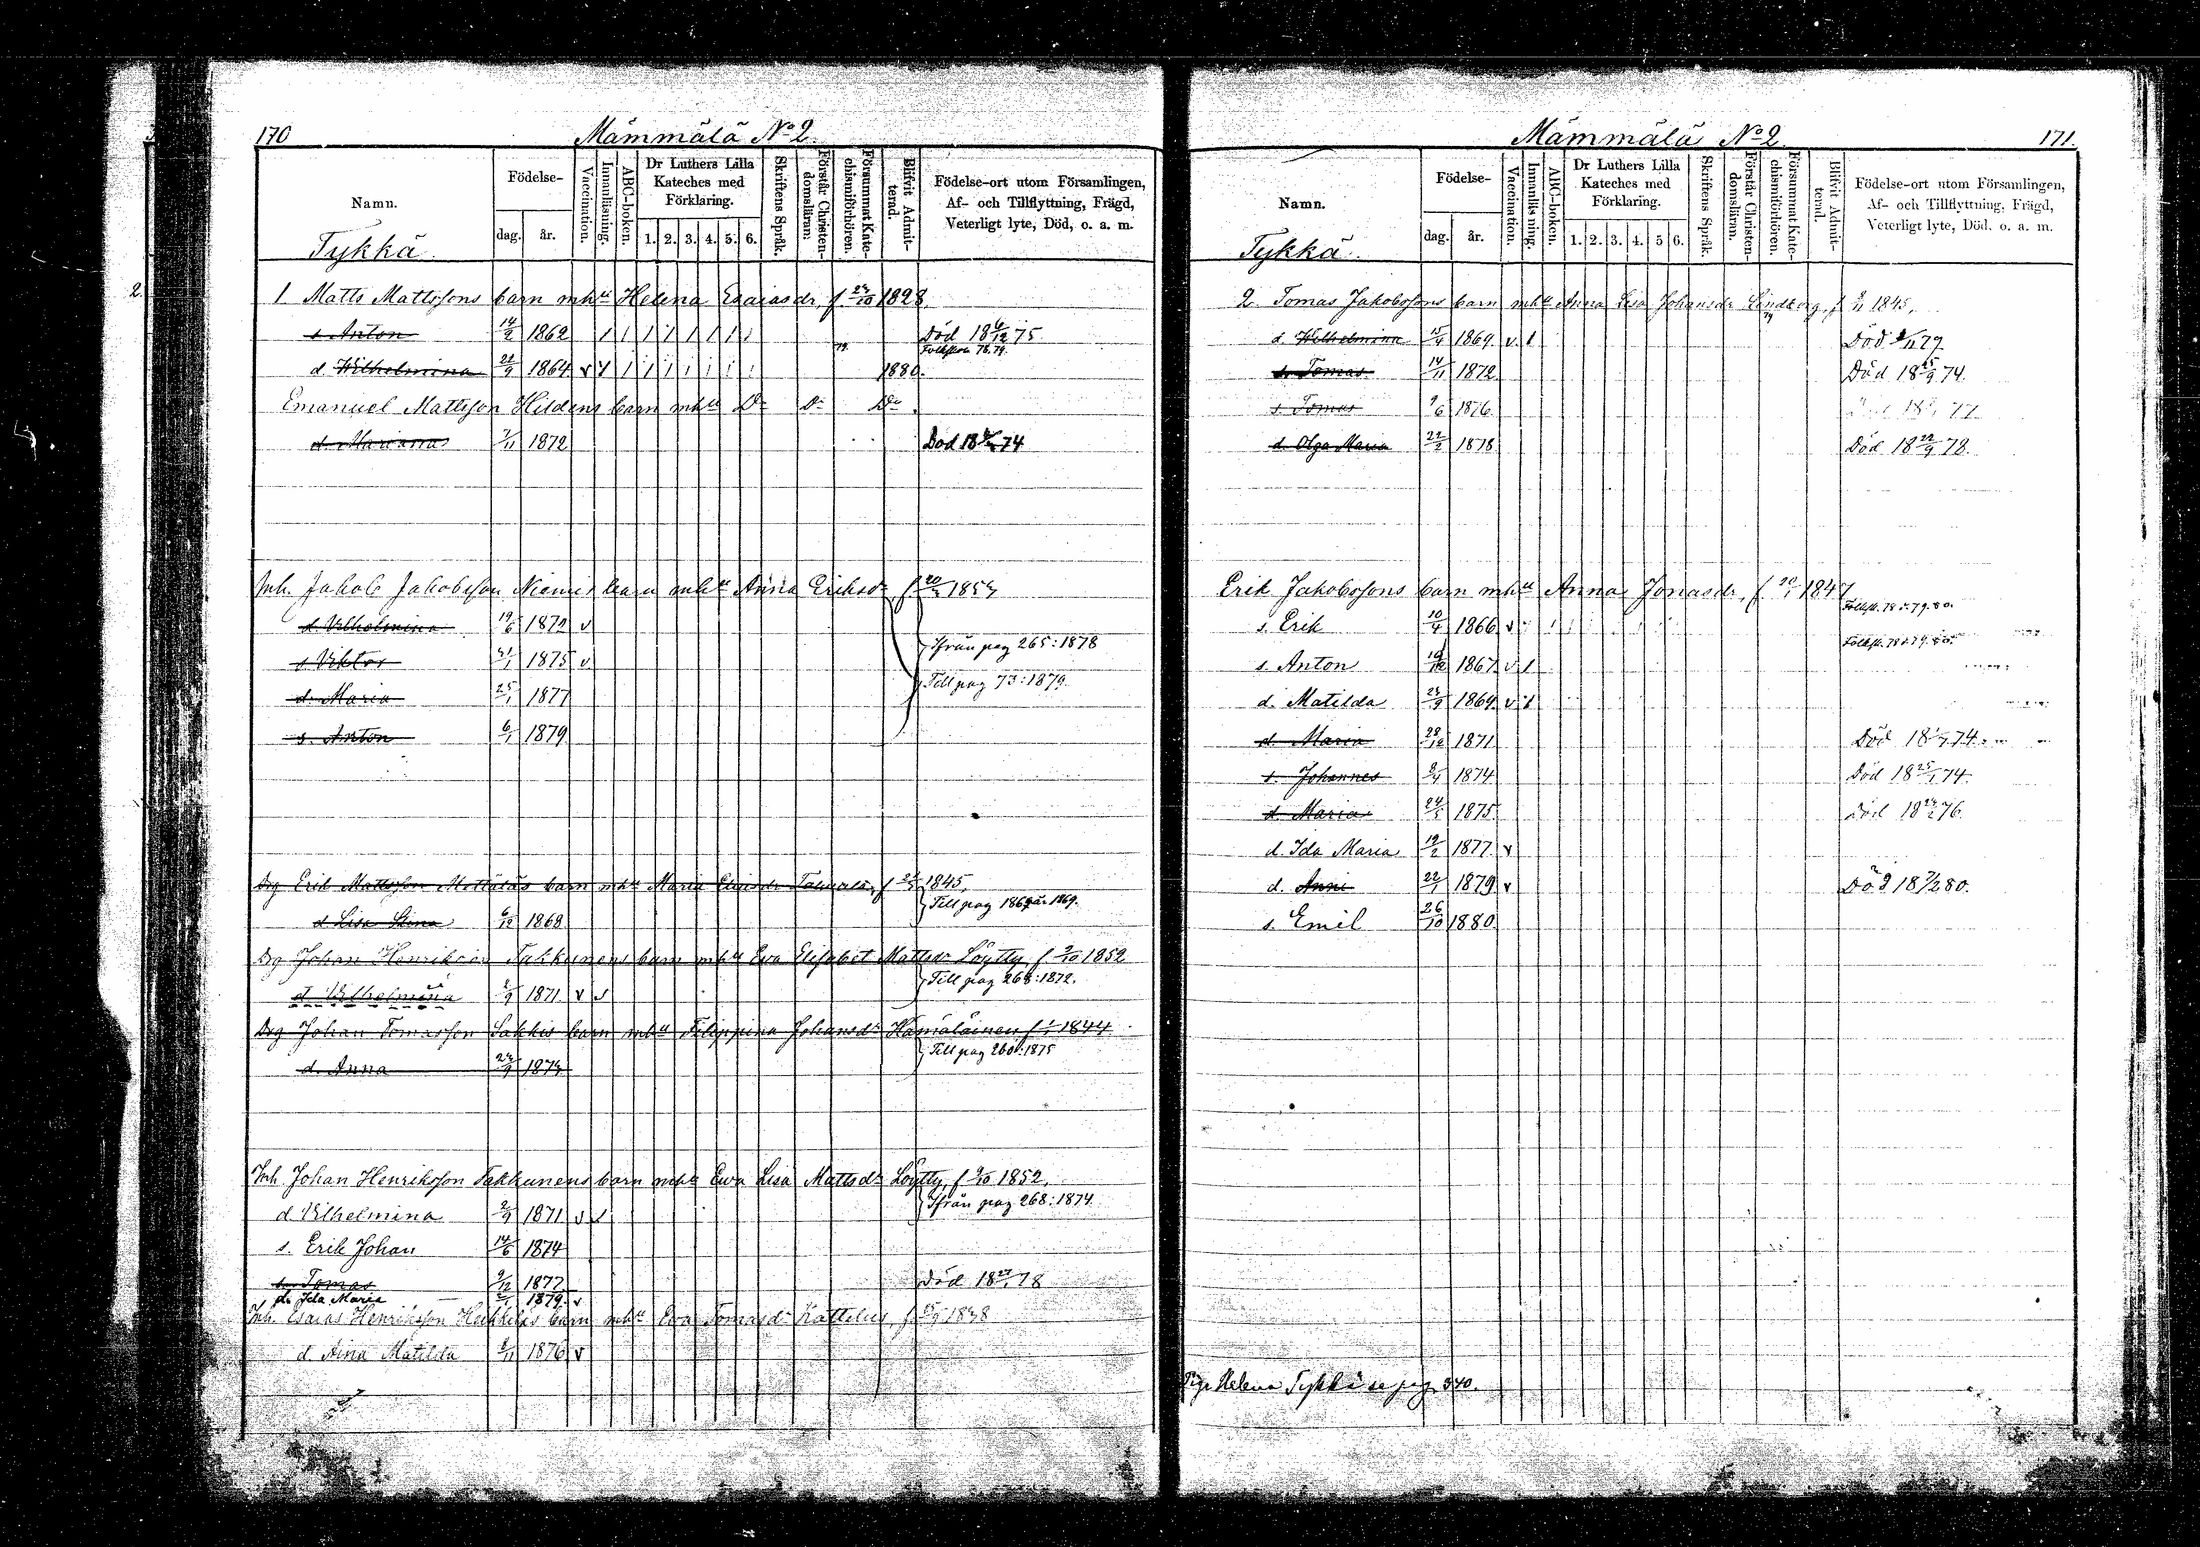 170
Mämmälä No 2.
Namn.
Födelse-
dag.
år.
Vaccination.
Innanläsning.
ABC-boken.
Dr Luthers Lilla Kateches med Förklaring.
1. 2. 3. 4. 5. 6.
Skriftens Språk.
Förstår Christen-domsläran:
Försummat Kate-chismiförhören.
Blifvit Admit-terad.
Födelse-ort utom Församlingen,
Af- och Tillflyttning, Frägd,
Veterligt lyte, Död, o. a. m.
Tykkä.
2.
1 Matts Mattssons barn mhu Helena Esaiasdr f 1828
s Anton 14/2 1862 Död 18 6/12 75
Folkskola 78. 79.
d. Wilhelmina 21/9 1864 v 1880.
Emanuel Mattsson Hildens barn mhu Do Do Do
d. Marianna 7/11 1872 Död 18 74
Inh. Jakob Jakobsson Niemis barn mhu Anna Eriksdr f
d. Vilhelmina 19/6 1872 v
Ifrån pag 265: 1878
s Viktor 1875 v
Till pag 73: 1879.
d. Maria 25/1 1877
s. Anton 6/1 1879
Drg Erik Mattsson Mattiläs barn mhu Maria f 1845.
Till pag
d Lisa Stina 6/12 1868
Drg Johan Henriksson Takkunens barn mhu Eva Elisabet Mattsdr Löytty f 9/10 1852
Till pag 268: 1872.
d Vilhelmina 2/9 1871 v
Drg Johan Tomasson Sakkis barn mhu Filippina Johansdr Hämäläinen f 1/1 1844.
Till pag 260: 1875
d. Anna
Inh. Johan Henriksson Takkunens barn mhu Eva Lisa Mattsdr Löytty, f 9/10 1852.
Ifrån pag 268: 1874
d Vilhelmina 2/9 1871 v
s. Erik Johan 14/6 1874
s. Tomas 9/12 1877 Död 18 27/1 78
d. Ida Maria 1879 v
Inh. Esaias Henriksson Heikkiläs barn mhu Eva Tomasdr Kattelus f
d Aina Matilda 1876 v
Mämmälä No 2.
171.
Namn.
Födelse-
dag.
år.
Vaccination.
Innanläsning.
ABC-boken.
Dr Luthers Lilla Kateches med Förklaring.
1. 2. 3. 4. 5 6.
Skriftens Språk.
Förstår Christen-domsläran.
Försummat Kate-chismiförhören.
Blifvit Admit-terad.
Födelse-ort utom Församlingen,
Af- och Tillflyttning, Frägd,
Veterligt lyte, Död, o. a. m.
Tykkä.
2. Tomas Jakobssons barn mhu Anna Lisa Johansdr Lindberg, f 1845.
d. Wilhelmina 1869 v Död 77
s. Tomas 14/11 1872 Död 18 25/9 74.
s. Tomas 1876 77
d. Olga Maria 22/2 1878 Död 18 22/9 78.
Erik Jakobssons barn mhu Anna Jonasdr, f. 1847
s. Erik 10/4 1866 v
s. Anton 1867 v
d. Matilda 1869 v
d. Maria 28/12 1871 Död 18 74.
s. Johannes 1874 Död 18 25/1 74.
d. Maria 1875 Död 18 76.
d. Ida Maria 19/2 1877 v
d. Anni 22/1 1879 v Död 18 7/2 80.
s. Emil 26/10 1880
Pig. Helena Tykkä se pag. 340.